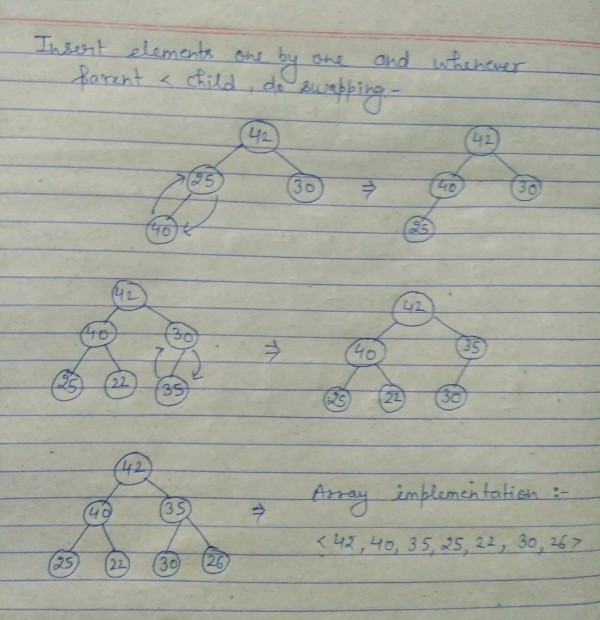 Insert elements one by one and whenever
parent < child, do swapping -
42 42
25 30 ⇒ 40 30
40 25
42 42
40 30 ⇒ 40 35
25 22 35 25 22 30
42 Array implementation :-
40 35 ⇒
<42, 40, 35, 25, 22, 30, 26>
25 22 30 26